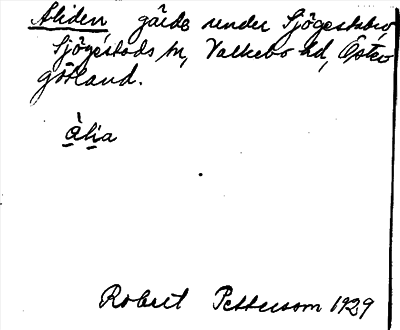 Aliden gärde under Sjögestabro
Sjögestads sn, Valkebo hd, Öster
götland.
àlia
Robert Pettersson 1929